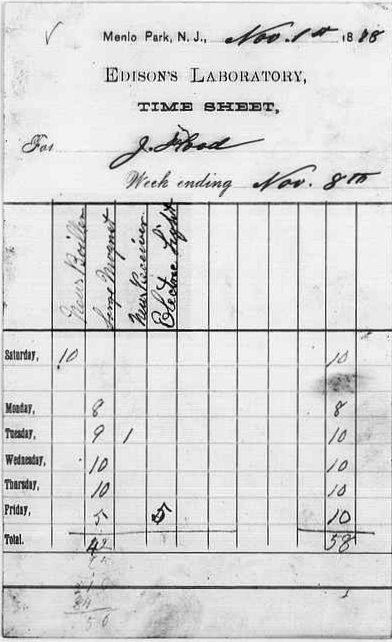 Menlo Park, N. J., Nov. 1st 1878
EDISON'S LABORATORY,
TIME SHEET,
For J. Flood
Week ending Nov. 8th
New Boiler
Large Magnet
New Receiver
Electric Light
Saturday, 10 10
Monday, 8 8
Tuesday, 9 1 10
Wednesday, 10 10
Thursday, 10 10
Friday, 5 5 10
Total. 42 58